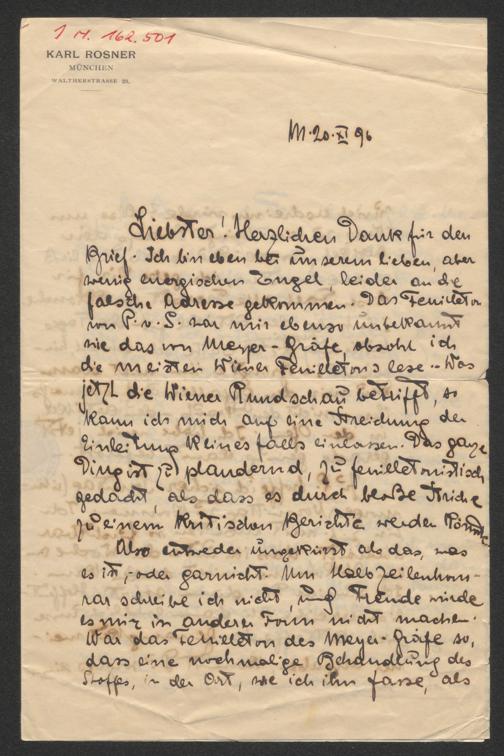 1 N. 162.501
KARL ROSNER
MÜNCHEN
WALTHERSTRASSE 25.
M. 20. XI 96
Liebster! Herzlichen Dank für den
Brief. Ich bin eben bei unserem lieben, aber
wenig energischen Engel, leider an die
falsche Adresse gekommen. Das Feuilleton
von P. v. S. war mir ebenso unbekannt
wie das von Meyer-Gräfe, obwohl ich
die meisten Wiener Feuilletons lese. – Was
jetzt die Wiener Rundschau betrifft, so
kann ich mich auf eine Streichung der
Einleitung keinesfalls einlassen. Das ganze
Ding ist zu plaudernd, zu feuilletonistisch
gedacht, als dass es durch bloße Striche
zu einem kritischen Berichte werden könnte
Also entweder ungekürzt als das, was
es ist, – oder garnicht. Um Halbzeilenhono-
rar schreibe ich nicht, und Freude würde
es mir in anderer Form nicht machen.
War das Feuilleton des Meyer-Gräfe so,
dass eine nochmalige Behandlung des
Stoffes, in der Art, wie ich ihn fasse, als